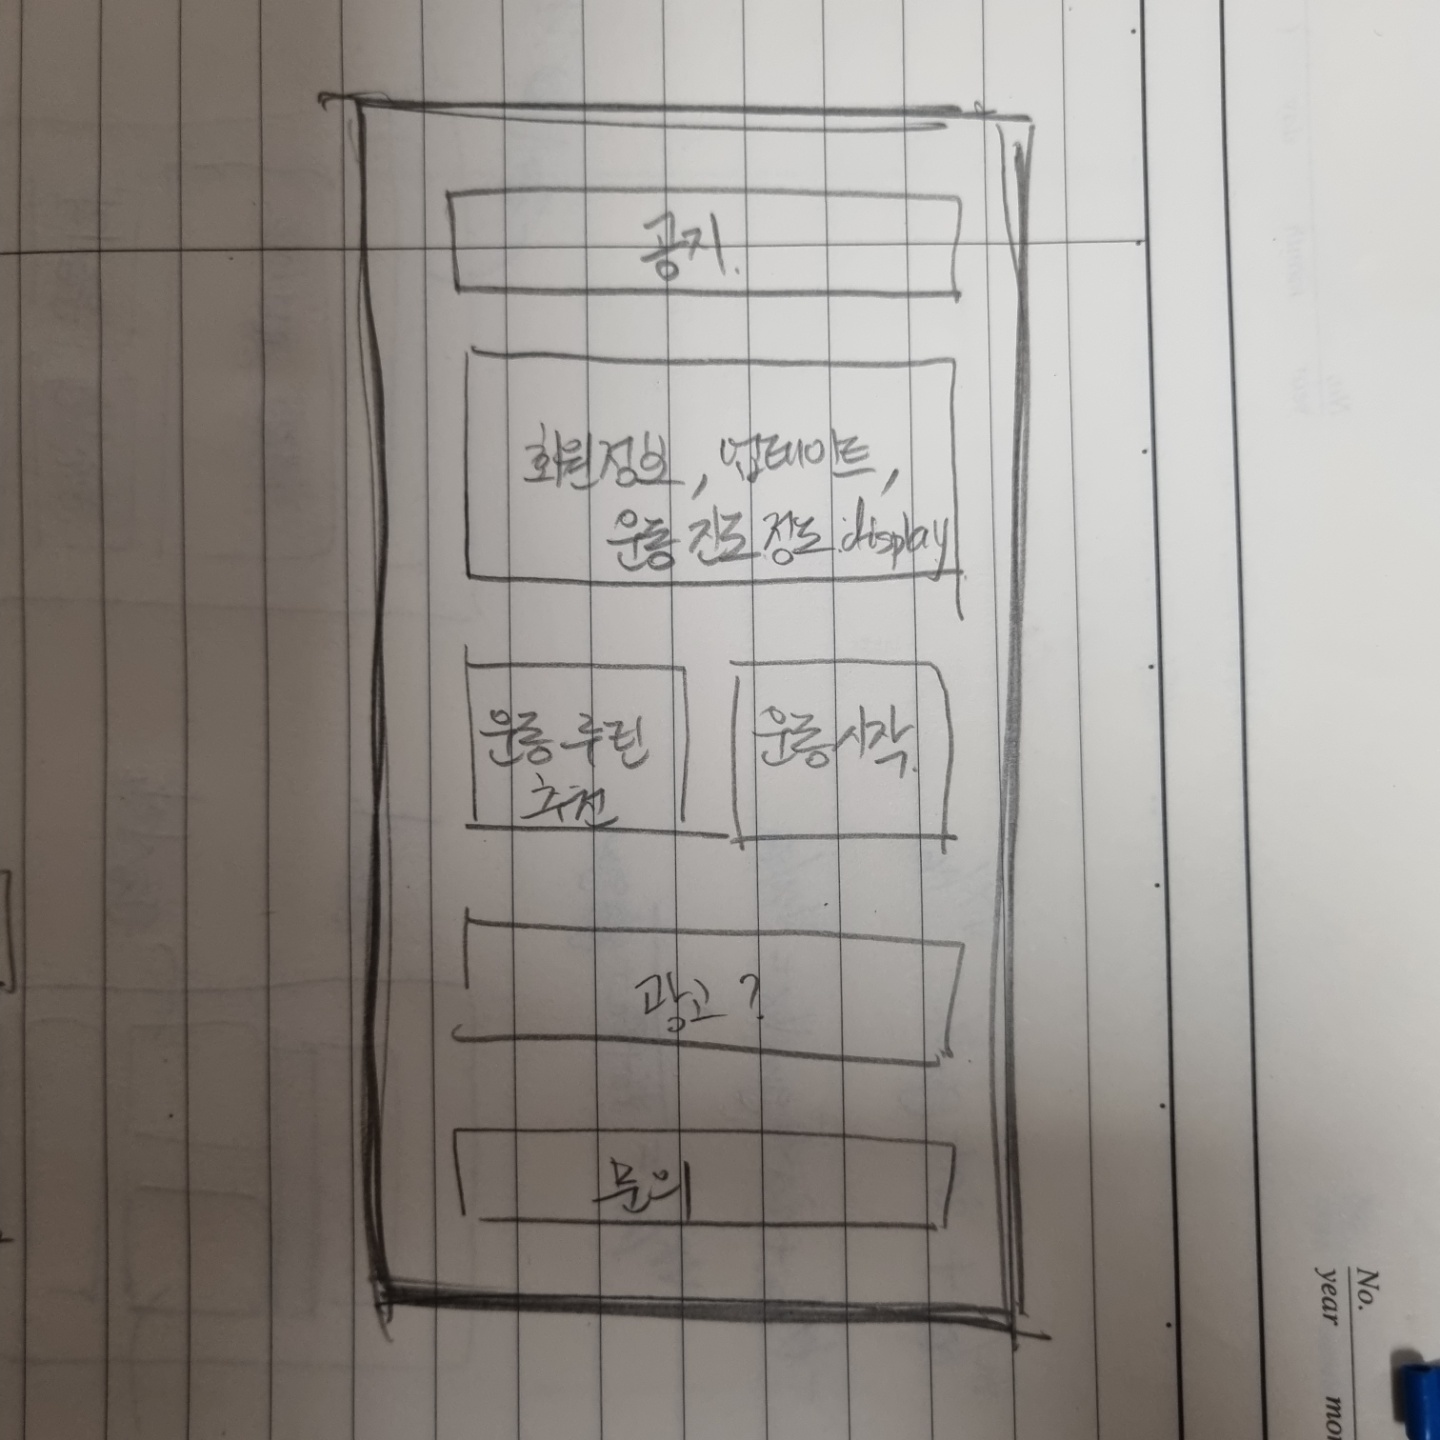 공지.
회원정보, 업데이트,
운동 진도 정도 display
운동 루틴
추천
운동시작.
광고?
문의
No.
year
mon